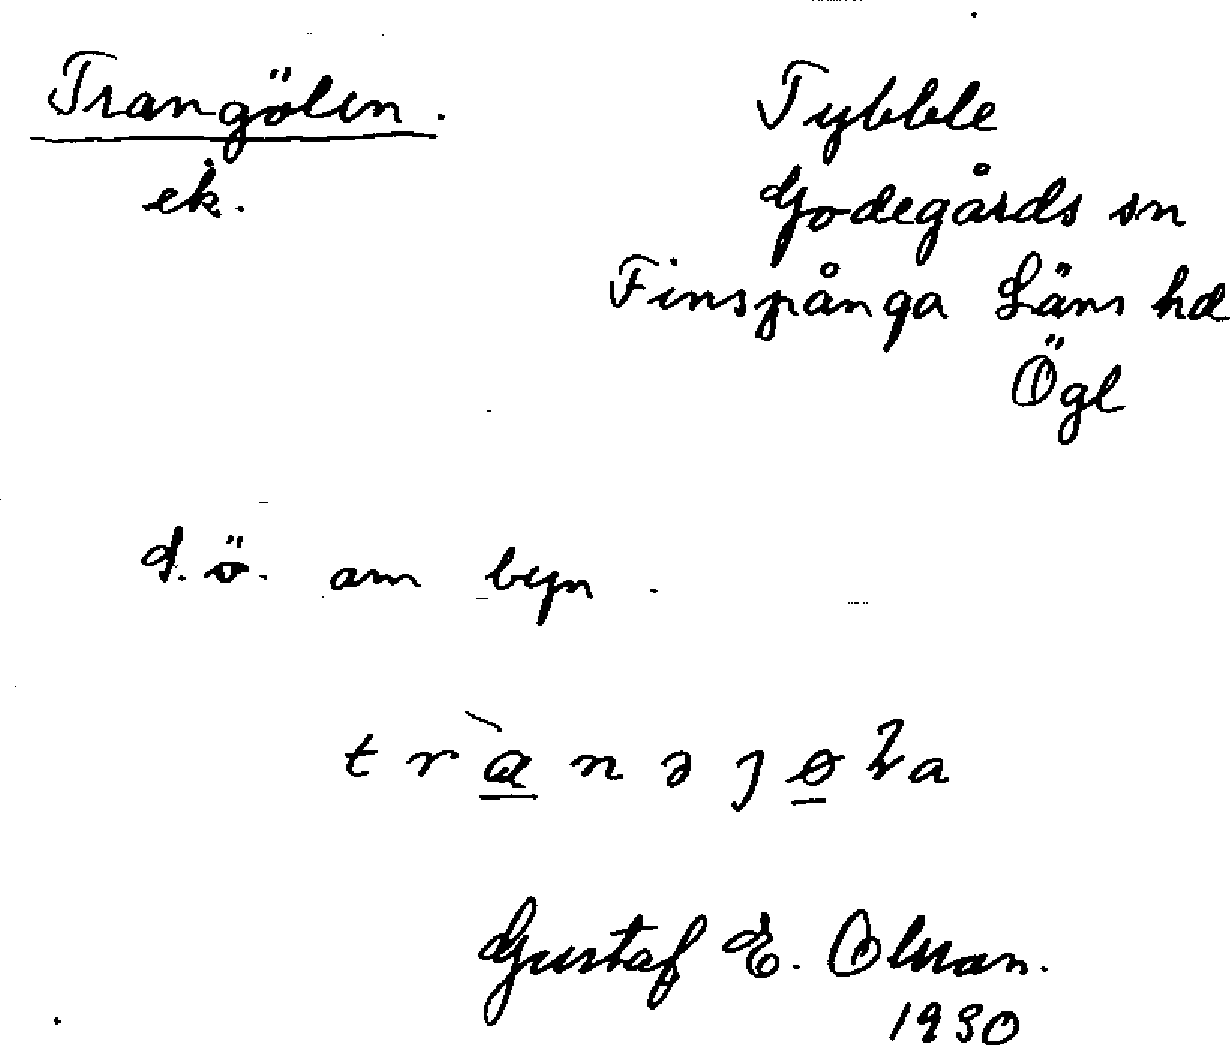 Trangölen.
ek.
Tybble
Godegårds sn
Finspånga Läns hd
Ögl
S.ö. om byn.
trànəȷøla
Gustaf E. Olsson.
1930